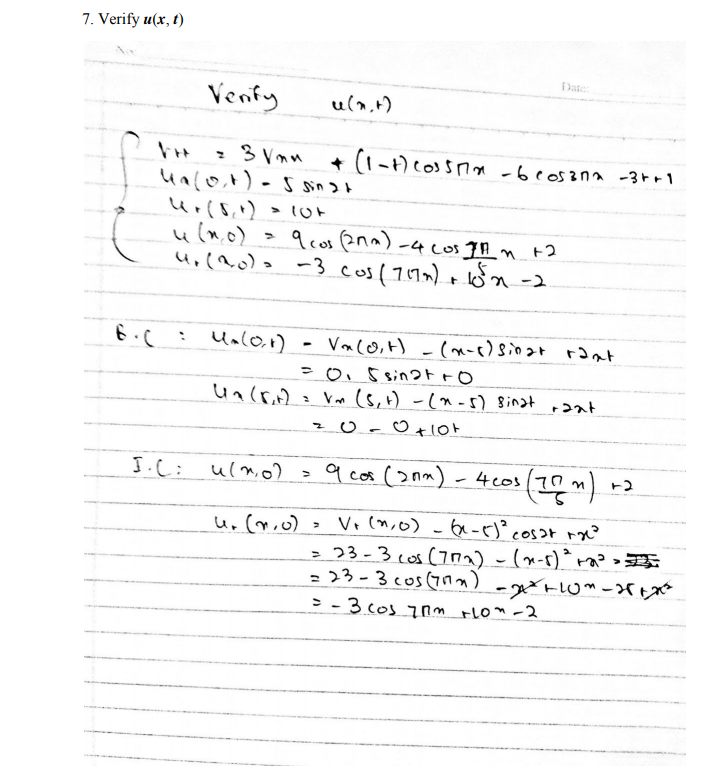 7. Verify u(x, t)
Date:
Verify u(x,t)
Vtt = 3Vxx + (1-t)cos5πx - 6cos3πx - 3t+1
Ux(0,t) = 5 sin2t
Ux(5,t) = 10t
u(x,0) = 9cos(2πx) - 4cos 7π/5 x + 2
Ut(x,0) = -3 cos(7πx) + 10x - 2
B.C : Ux(0,t) = Vx(0,t) - (x-5)sin2t + 2xt
= 0, 5sin2t + 0
Ux(5,t) = Vx(5,t) - (x-5) sin2t + 2xt
= 0 - 0 + 10t
I.C: u(x,0) = 9cos(2πx) - 4cos(7π/5 x) + 2
Ut(x,0) = Vt(x,0) - (x-5)² cos2t + x²
= 23 - 3cos(7πx) - (x-5)² + x² =
= 23 - 3cos(7πx) - x² + 10x - 25 + x²
= -3cos 7πx + 10x - 2